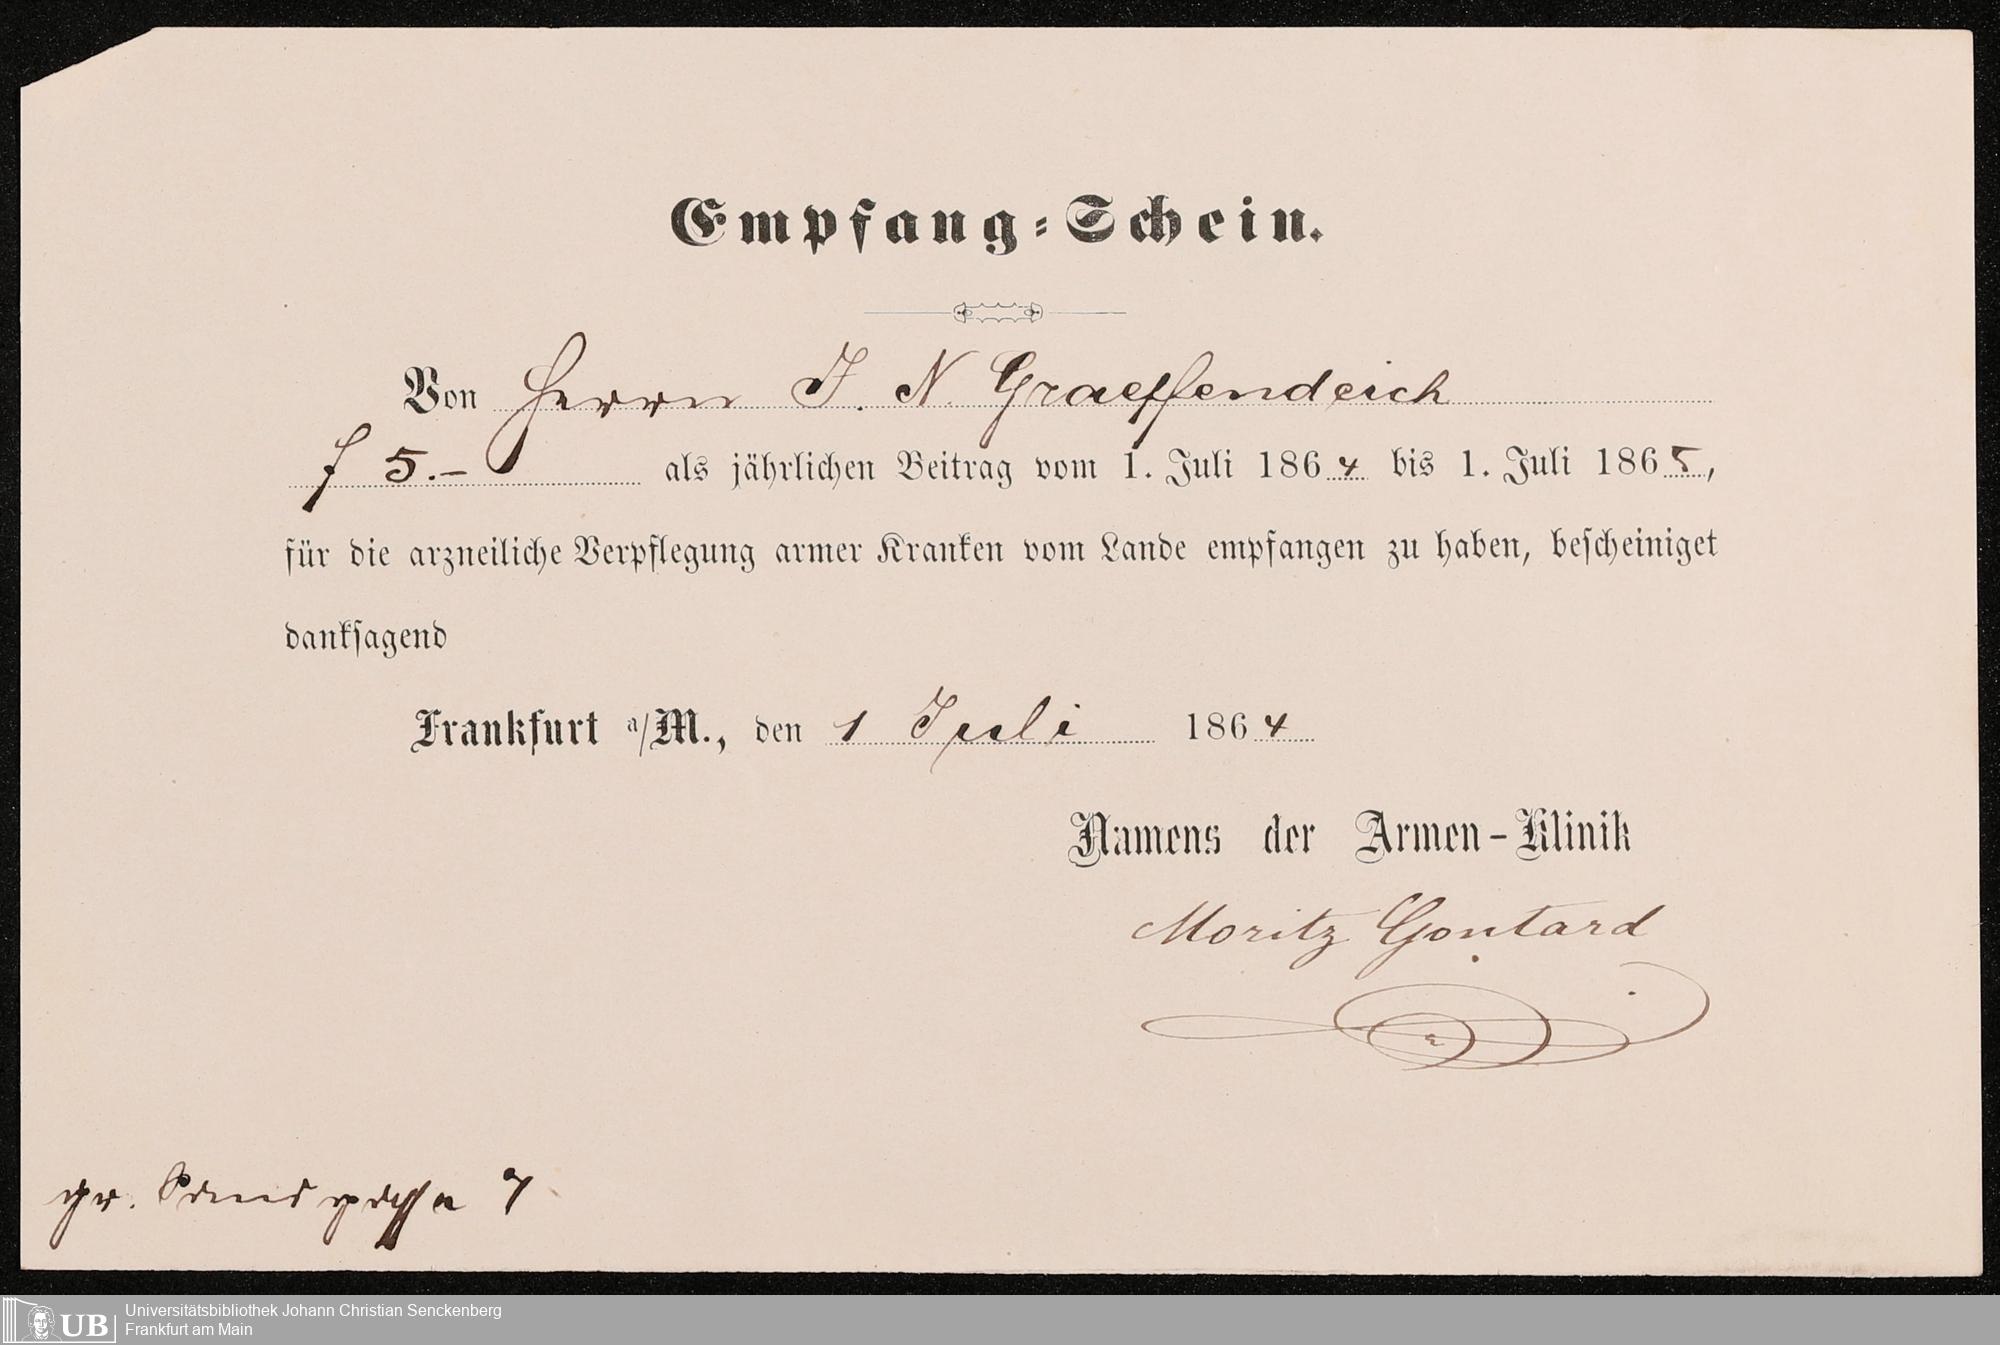 Empfang-Schein.
Von Herrn J. N. Graeffendeich
f 5.– als jährlichen Beitrag vom 1. Juli 1864 bis 1. Juli 1865,
für die arzneiliche Verpflegung armer Kranken vom Lande empfangen zu haben, bescheiniget
danksagend
Frankfurt a/M., den 1 Juli 1864
Namens der Armen-Klinik
Moritz Gontard
gr. 7
UB
Universitätsbibliothek Johann Christian Senckenberg
Frankfurt am Main